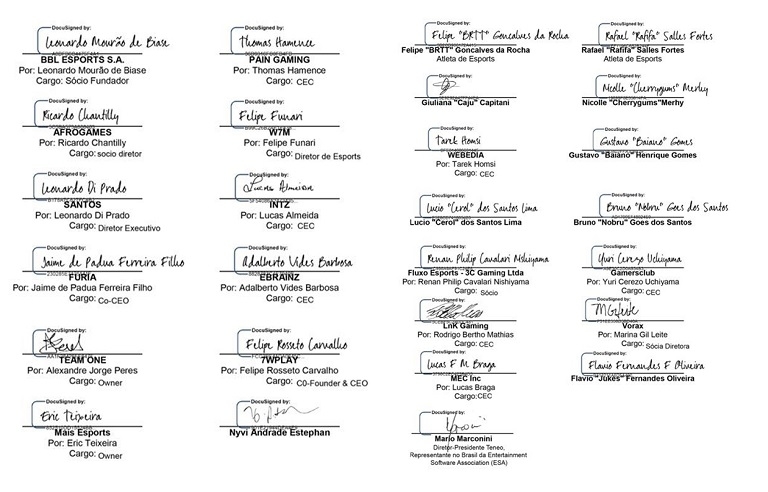 DocuSigned by:
Leonardo Mourão de Biase
BBL ESPORTS S.A.
Por: Leonardo Mourão de Biase
Cargo: Sócio Fundador
DocuSigned by:
Thomas Hamence
PAIN GAMING
Por: Thomas Hamence
Cargo: CEC
DocuSigned by:
Ricardo Chantilly
AFROGAMES
Por: Ricardo Chantilly
Cargo: socio diretor
DocuSigned by:
Felipe Funari
W7M
Por: Felipe Funari
Cargo: Diretor de Esports
DocuSigned by:
Leonardo Di Prado
SANTOS
Por: Leonardo Di Prado
Cargo: Diretor Executivo
DocuSigned by:
Lucas Almeida
INTZ
Por: Lucas Almeida
Cargo: CEC
DocuSigned by:
Jaime de Padua Ferreira Filho
FURIA
Por: Jaime de Padua Ferreira Filho
Cargo: Co-CEO
DocuSigned by:
Adalberto Vides Barbosa
EBRAINZ
Por: Adalberto Vides Barbosa
Cargo: CEC
DocuSigned by:
TEAM ONE
Por: Alexandre Jorge Peres
Cargo: Owner
DocuSigned by:
Felipe Rosseto Carvalho
7WPLAY
Por: Felipe Rosseto Carvalho
Cargo: C0-Founder & CEO
DocuSigned by:
Eric Teixeira
Mais Esports
Por: Eric Teixeira
Cargo: Owner
DocuSigned by:
Nyvi Andrade Estephan
DocuSigned by:
Felipe "BRTT" Goncalves da Rocha
Felipe "BRTT" Goncalves da Rocha
Atleta de Esports
DocuSigned by:
Rafael "Rafifa" Salles Fortes
Rafael "Rafifa" Salles Fortes
Atleta de Esports
DocuSigned by:
Giuliana "Caju" Capitani
DocuSigned by:
Nicolle "Cherrygums" Merhy
Nicolle "Cherrygums"Merhy
DocuSigned by:
Tarek Homsi
WEBEDIA
Por: Tarek Homsi
Cargo: CEC
DocuSigned by:
Gustavo "Baiano" Gomes
Gustavo "Baiano" Henrique Gomes
DocuSigned by:
Lucio "Cerol" dos Santos Lima
Lucio "Cerol" dos Santos Lima
DocuSigned by:
Bruno "Nobru" Goes dos Santos
Bruno "Nobru" Goes dos Santos
DocuSigned by:
Renan Philip Cavalari Nishiyama
Fluxo Esports - 3C Gaming Ltda
Por: Renan Philip Cavalari Nishiyama
Cargo: Sócio
DocuSigned by:
Yuri Cerezo Uchiyama
Gamersclub
Por: Yuri Cerezo Uchiyama
Cargo: CEC
DocuSigned by:
LnK Gaming
Por: Rodrigo Bertho Mathias
Cargo: CEC
DocuSigned by:
MGileite
Vorax
Por: Marina Gil Leite
Cargo: Sócia Diretora
DocuSigned by:
Lucas F M Braga
MEC Inc
Por: Lucas Braga
Cargo:CEC
DocuSigned by:
Flavio Fernandes F Oliveira
Flavio "Jukes" Fernandes Oliveira
DocuSigned by:
Mario Marconini
Diretor-Presidente Teneo,
Representante no Brasil da Entertainment
Software Association (ESA)